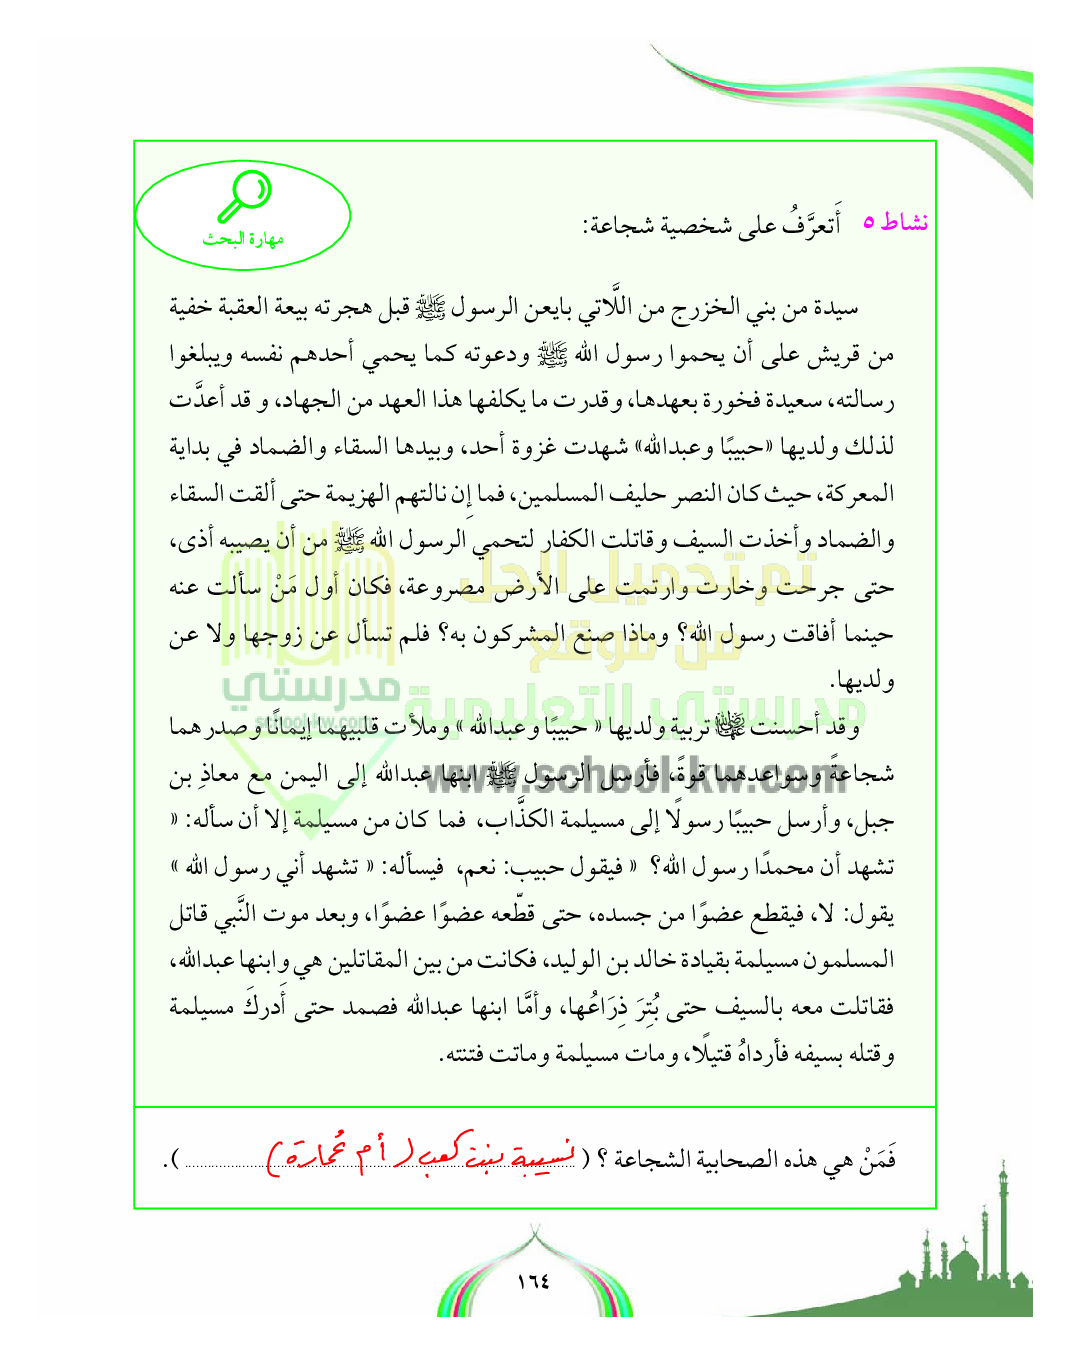 مهارة البحث
نشاط ٥ أَتعرَّفُ على شخصية شجاعة:
سيدة من بني الخزرج من اللَّاتي بايعن الرسول ﷺ قبل هجرته بيعة العقبة خفية
من قريش على أن يحموا رسول الله ﷺ ودعوته كما يحمي أحدهم نفسه ويبلغوا
رسالته، سعيدة فخورة بعهدها، وقدرت ما يكلفها هذا العهد من الجهاد، و قد أعدَّت
لذلك ولديها «حبيبًا وعبدالله» شهدت غزوة أحد، وبيدها السقاء والضماد في بداية
المعركة، حيث كان النصر حليف المسلمين، فما إِن نالتهم الهزيمة حتى ألقت السقاء
والضماد وأخذت السيف وقاتلت الكفار لتحمي الرسول الله ﷺ من أن يصيبه أذى،
حتى جرحت وخارت وارتمت على الأرض مصروعة، فكان أول مَنْ سألت عنه
حينما أفاقت رسول الله؟ وماذا صنع المشركون به؟ فلم تسأل عن زوجها ولا عن
ولديها.
وقد أحسنت رضي الله عنها تربية ولديها « حبيبًا وعبدالله » وملأت قلبيهما إيمانًا وصدرهما
شجاعةً وسواعدهما قوةً، فأرسل الرسول ﷺ ابنها عبدالله إلى اليمن مع معاذِ بن
جبل، وأرسل حبيبًا رسولًا إلى مسيلمة الكذَّاب، فما كان من مسيلمة إلا أن سأله: «
تشهد أن محمدًا رسول الله؟ « فيقول حبيب: نعم، فيسأله: « تشهد أني رسول الله »
يقول: لا، فيقطع عضوًا من جسده، حتى قطّعه عضوًا عضوًا، وبعد موت النَّبي قاتل
المسلمون مسيلمة بقيادة خالد بن الوليد، فكانت من بين المقاتلين هي وابنها عبدالله،
فقاتلت معه بالسيف حتى بُتِرَ ذِرَاعُها، وأمَّا ابنها عبدالله فصمد حتى أَدركَ مسيلمة
وقتله بسيفه فأرداهُ قتيلًا، ومات مسيلمة وماتت فتنته.
تم تحميل الحل
من موقع
مدرستي التعليمية
www.school-kw.com
مدرستي
school-kw.com
فَمَنْ هي هذه الصحابية الشجاعة ؟ ( نسيبة بنت كعب (أم عُمارة) ).
١٦٤